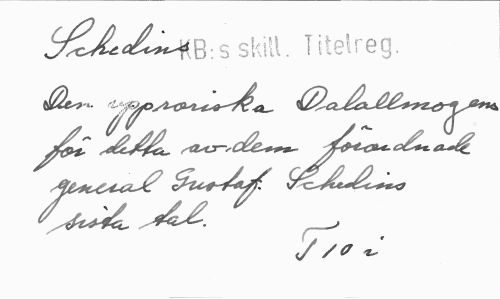 Schedins KB:s skill. Titelreg.
Den upproriska Dalallmogens
för detta av dem förordnade
general Gustaf. Schedins
sista tal.
T 10 i